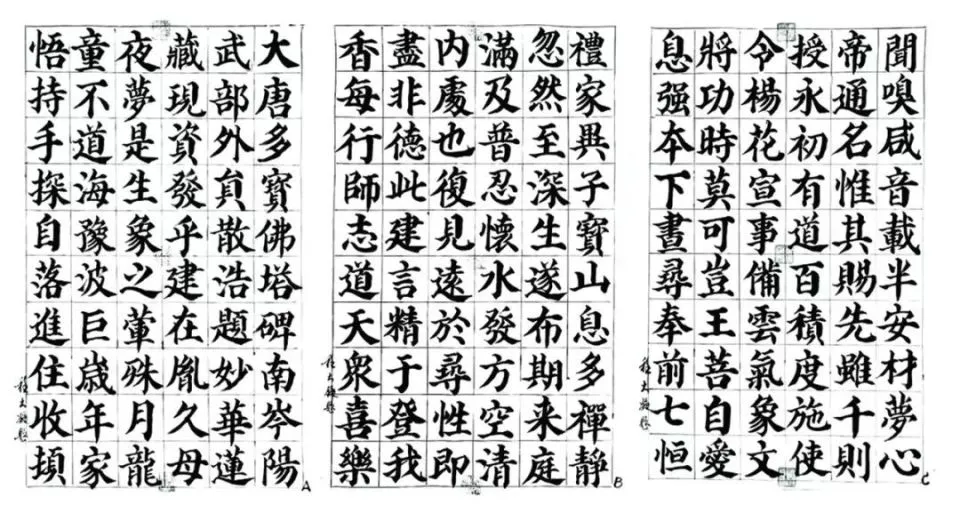 大唐多寶佛塔碑南岑陽
武部外貟散浩題妙華蓮
藏現資發乎建在胤久母
夜夢是生象之葷殊月龍
童不道海豫波巨歲年家
悟持手探自落進住收頃
A
禮家異子寶山息多禪靜
忽然至深生遂布期来庭
滿及普忍懷水發方空清
内處也復見遠於尋性即
盡非德此建言精于登我
香每行師志道天衆喜樂
B
聞嗅咸音載半安材夢心
帝通名惟其賜先雖千則
授永初有道百積度施使
令楊花宣事備雲氣象文
將功時莫可豈王菩自愛
息强本下晝尋奉前七恒
C